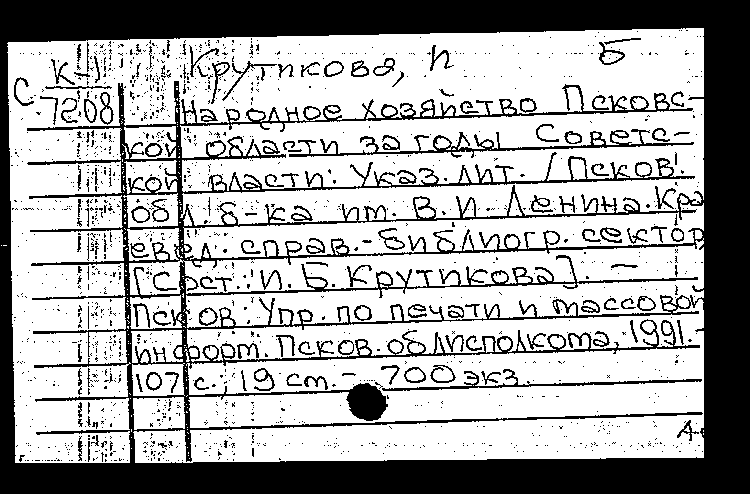 Крутикова, И Б
С К-1
7208
Народное хозяйство Псковс-
кой области за годы Советс-
кой власти: Указ. лит. / Псков.
обл. б-ка им. В. И. Ленина. Кра
евед. справ.-библиогр. сектор
[Сост.: И. Б. Крутикова]. —
Псков: Упр. по печати и массовой
информ. Псков. облисполкома, 1991.-
107 с.; 19 cm. - 700 экз.